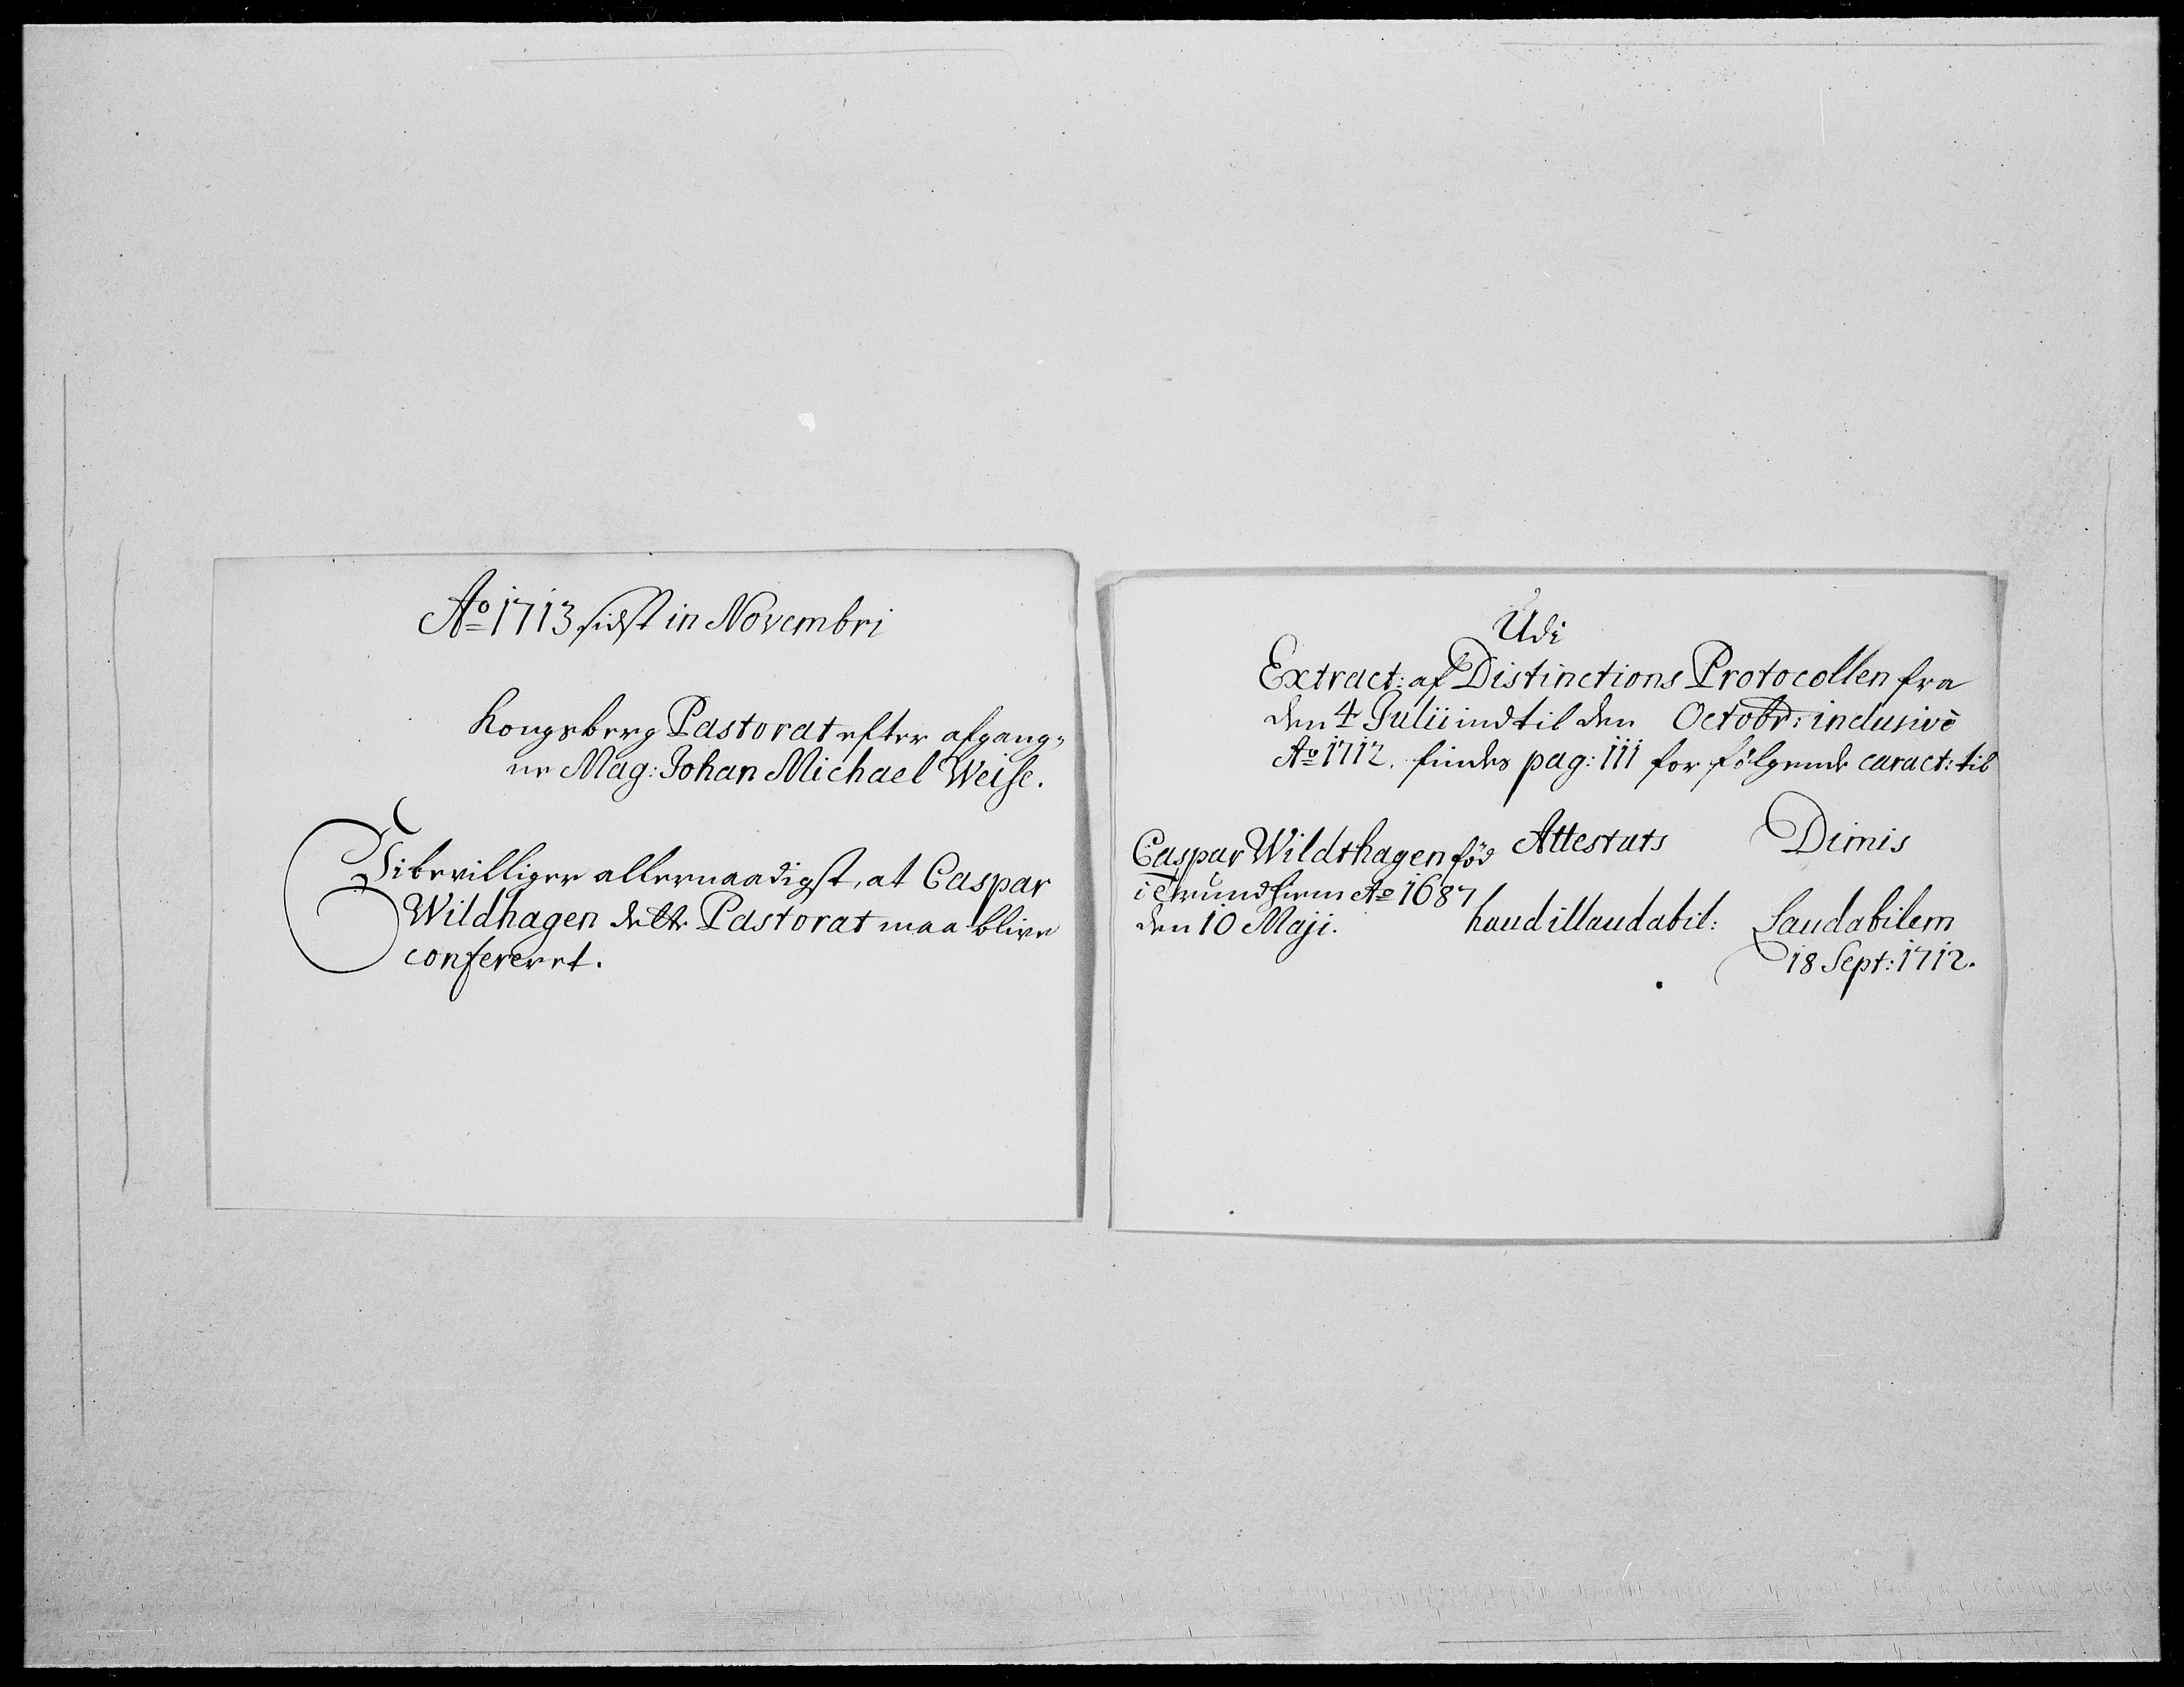 Ao 1713 sidst in Novembri
Kongsberg Pastorat efter afgang-
ne Mag: Johan Michael Weise.
Vi bevilliger allernaadigst, at Caspar
Wildhagen dette Pastorat maa blive
confereret.
Udi
Extract: af Distinctions Protocollen fra
den 4 Julii indtil den Octobr: inclusivè
Ao 1712. findes pag: 111 for følgende caract: til
Caspar Wildthagen fød Attestats Dimis
i Trundhiem Ao 1687
den 10 Maji. haud illaudabil: Laudabilem
18 Sept: 1712.